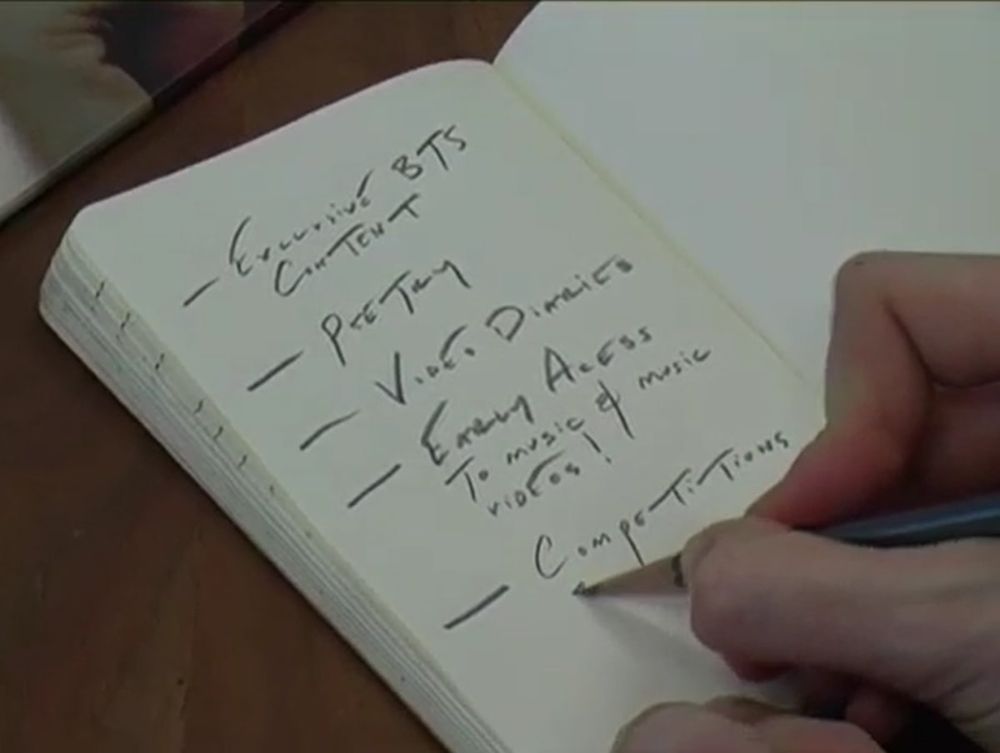 - Exclusive BTS
Content
- Poetry
- Video Diaries
- Early Access
To music & music
videos!
- Competitions